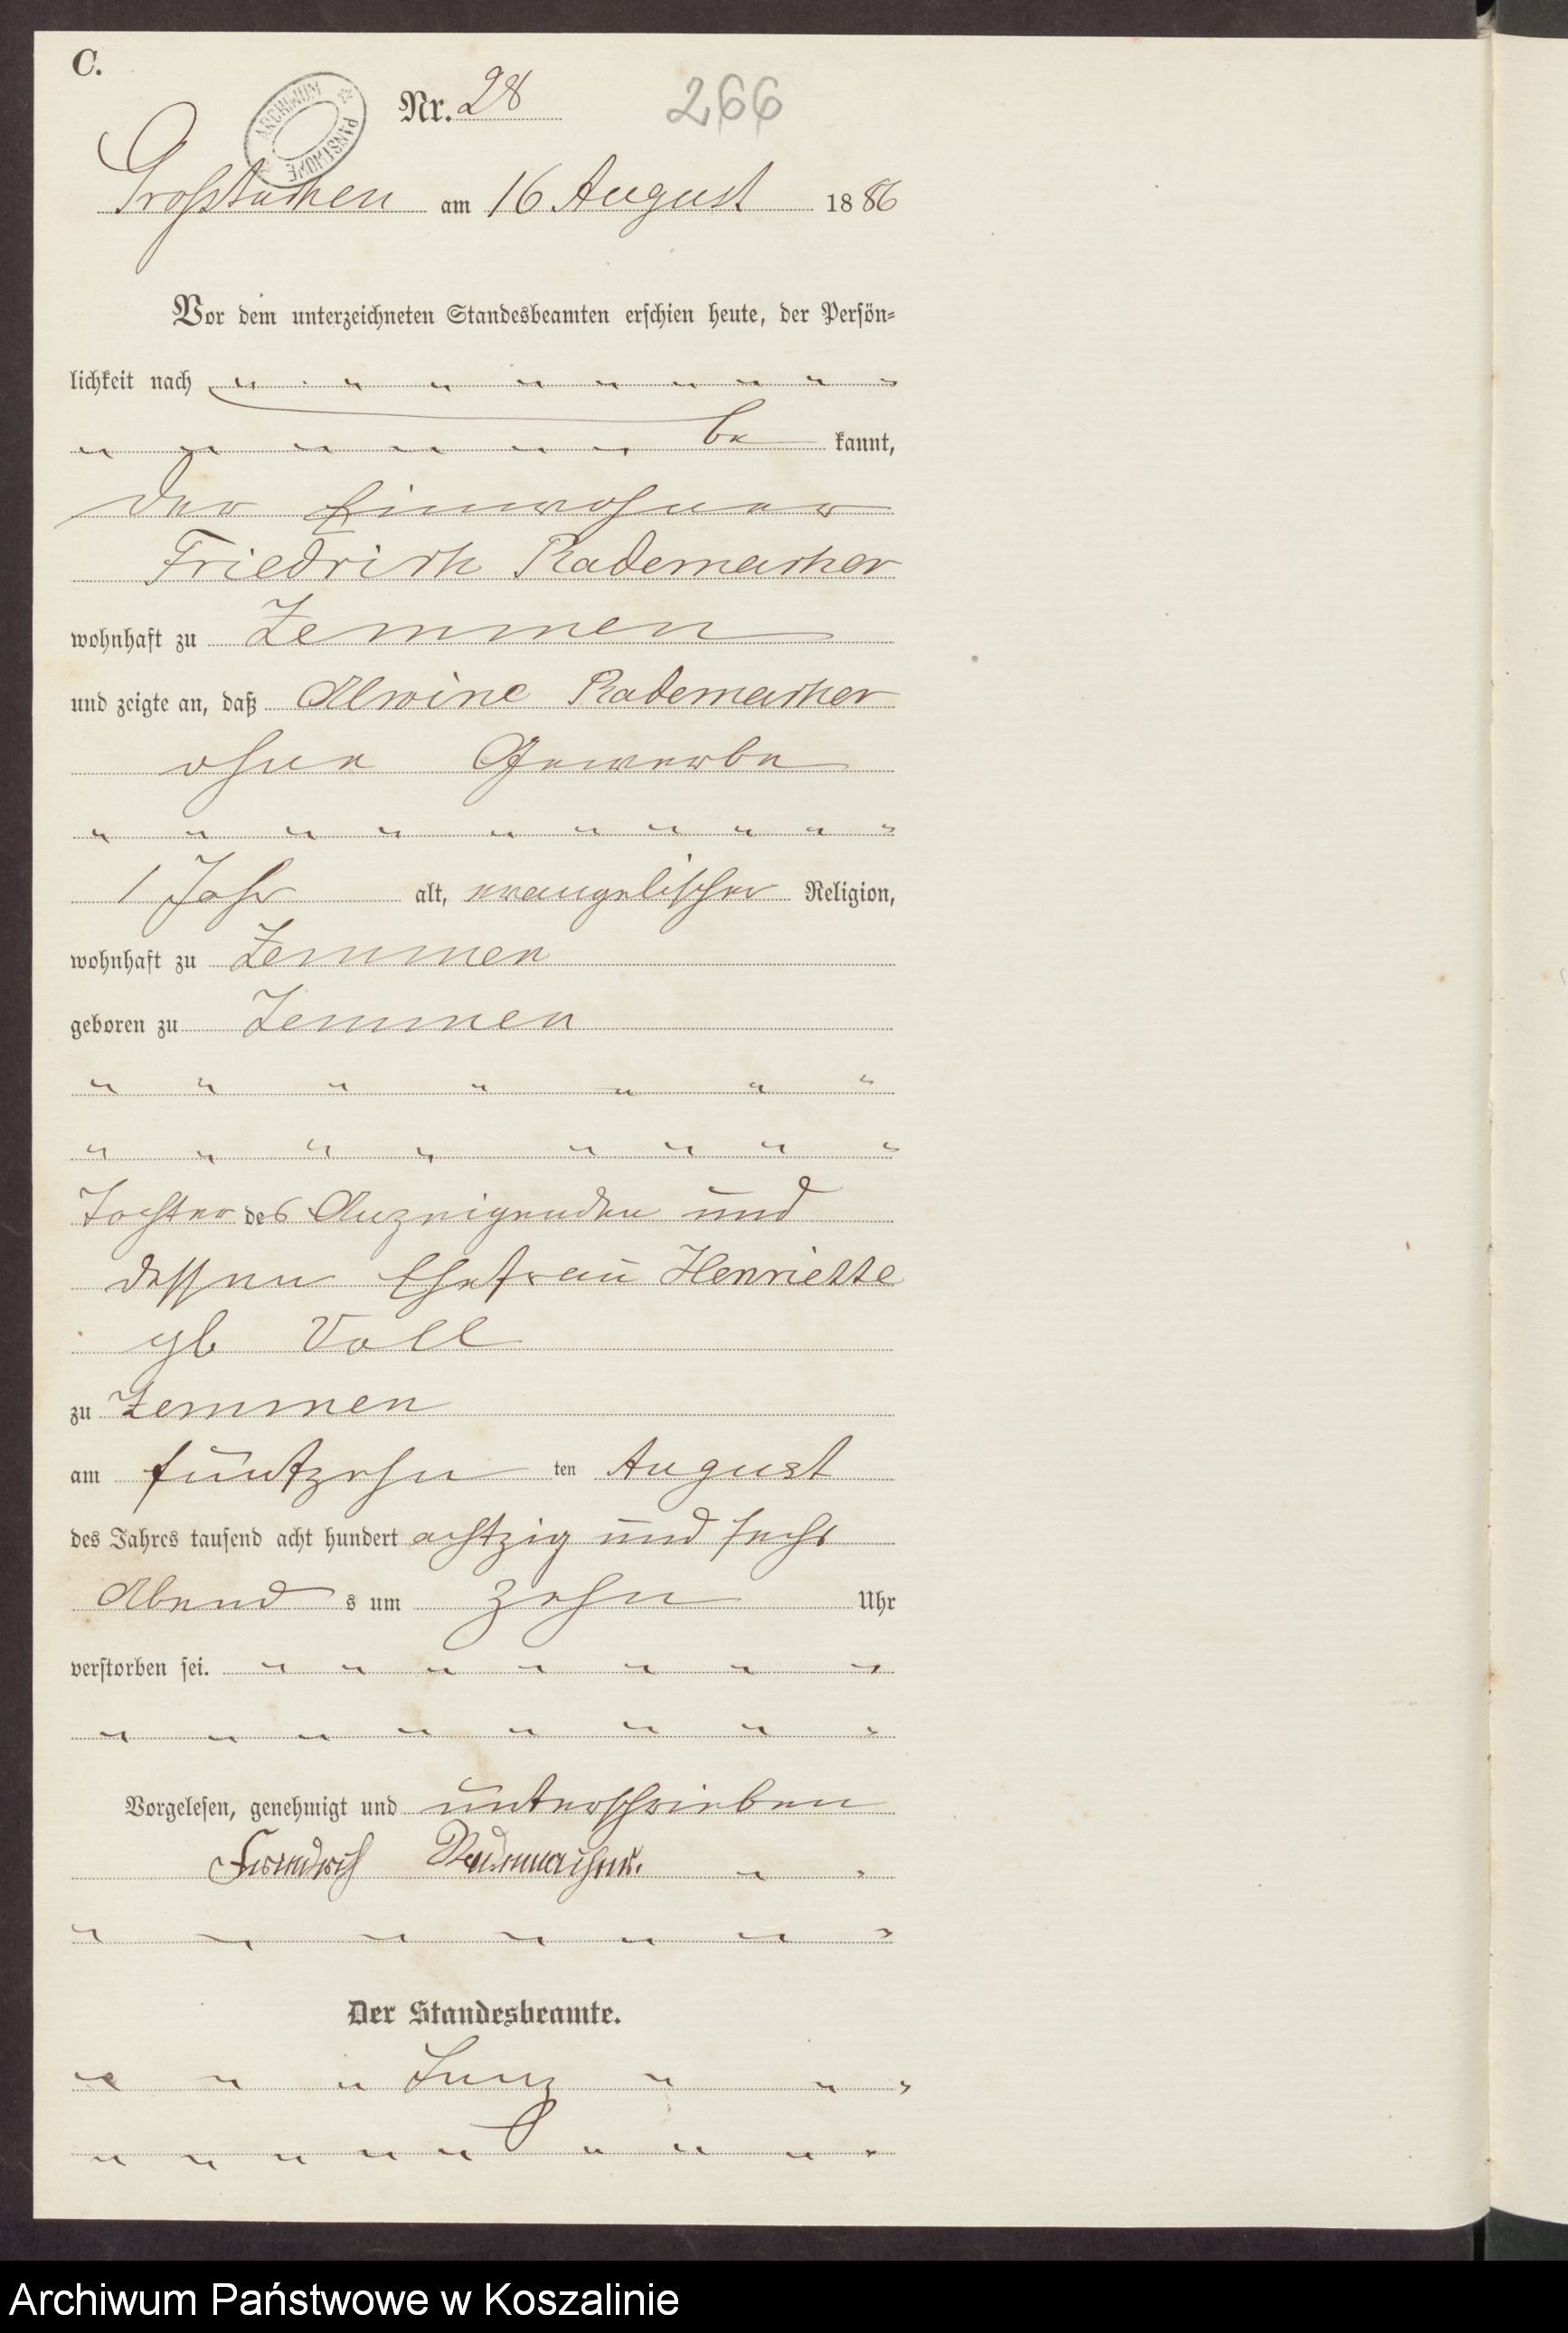 C.
ARCHIWUM PAŃSTWOWE
Nr. 28
266
Großtuchen am 16 August 1886
Vor dem unterzeichneten Standesbeamten erschien heute, der Persön-
lichkeit nach
be kannt,
der Einwohner
Friedrich Rademacher
wohnhaft zu Zemmen
und zeigte an, daß Alwine Rademacher
ohne Gewerbe
1 Jahr alt, evangelischer Religion,
wohnhaft zu Zemmen
geboren zu Zemmen
Tochter des Anzeigenden und
dessen Ehefrau Henriette
gb Voll
zu Zemmen
am fünfzehn ten August
des Jahres tausend acht hundert achtzig und sechs
Abend s um zehn Uhr
verstorben sei.
Vorgelesen, genehmigt und unterschrieben
Friedrich Rademacher.
Der Standesbeamte.
Archiwum Państwowe w Koszalinie